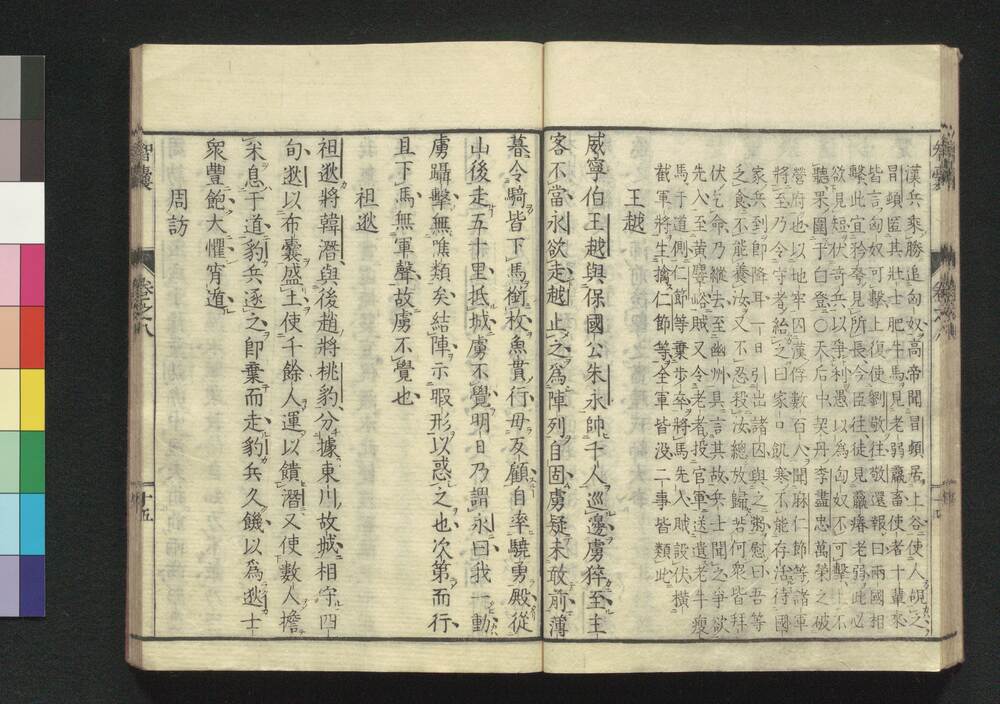 漢兵乘勝追匈奴高帝聞冒頓居上谷使人覘之
冒頓匿其壯士肥牛馬見老弱羸畜使者十輩來
皆言匈奴可擊上復使劉敬往敬還報曰兩國相
擊此宜矜夸見所長今臣往徒見羸瘠老弱此必
欲見短伏奇兵以爭利愚以為匈奴不可擊上不
聽果圍于白登〇天后中契丹李盡忠萬榮之破
營府也以地牢囚漢俘數百人聞麻仁節等諸軍
將至乃令守者紿之曰家口飢寒不能存活待國
家兵到即降耳一日引出諸囚與之粥慰曰吾等
之食不能養汝又不忍殺汝總放歸若何衆皆拜
伏乞命乃縱去至幽州具言其故兵士聞之爭欲
先入至黃麞峪賊又令老者投官軍送遺老牛瘦
馬于道側仁節等棄步卒將馬先入賊設伏橫
截軍將生擒仁節等全軍皆没二事皆類此
王越
威寧伯王越與保國公朱永帥千人巡邊虜猝至主
客不當永欲走越止之為陣列自固虜疑未敢前薄
暮令騎皆下馬銜枚魚貫行毋反顧自率驍勇殿從
山後走五十里抵城虜不覺明日乃謂永曰我一動
虜躡擊無噍類矣結陣示暇形以惑之也次第而行
且下馬無軍聲故虜不覺也
祖逖
祖逖將韓潛與後趙將桃豹分據東川故城相守四
旬逖以布囊盛土使千餘人運以饋潛又使數人擔
米息于道豹兵逐之即棄而走豹兵久饑以為逖士
衆豐飽大懼宵遁
周訪
智囊
卷之八
十五